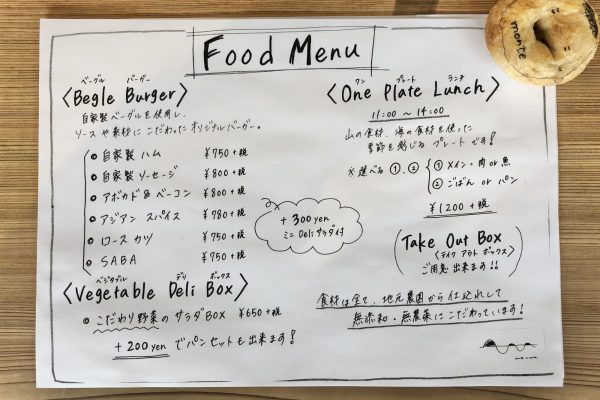 monte
Food Menu
ベーグル バーガー
〈Begle Burger〉
自家製ベーグルを使用し、
ソースや素材にこだわったオリジナルバーガー。
自家製 ハム ¥750+税
自家製 ソーセージ ¥800+税
アボカド&ベーコン ¥800+税
アジアン スパイス ¥780+税
ロース カツ ¥750+税
SABA ¥750+税
+300yen
ミニ Deli サラダ付
ベジタブル デリ ボックス
〈Vegetable Deli Box〉
こだわり野菜のサラダBOX ¥650+税
+200yen でパンセットも出来ます!
ワン プレート ランチ
〈One Plate Lunch〉
11:00~14:00
山の食材、海の食材を使った
季節を感じる プレートです!
※選べる ①、②
① メイン・肉 or 魚
② ごはん or パン
¥1200+税
Take Out Box
〈テイク アウト ボックス〉
ご用意 出来ます!!
食材は全て、地元農園から仕入れして
無添加・無農薬にこだわっています!